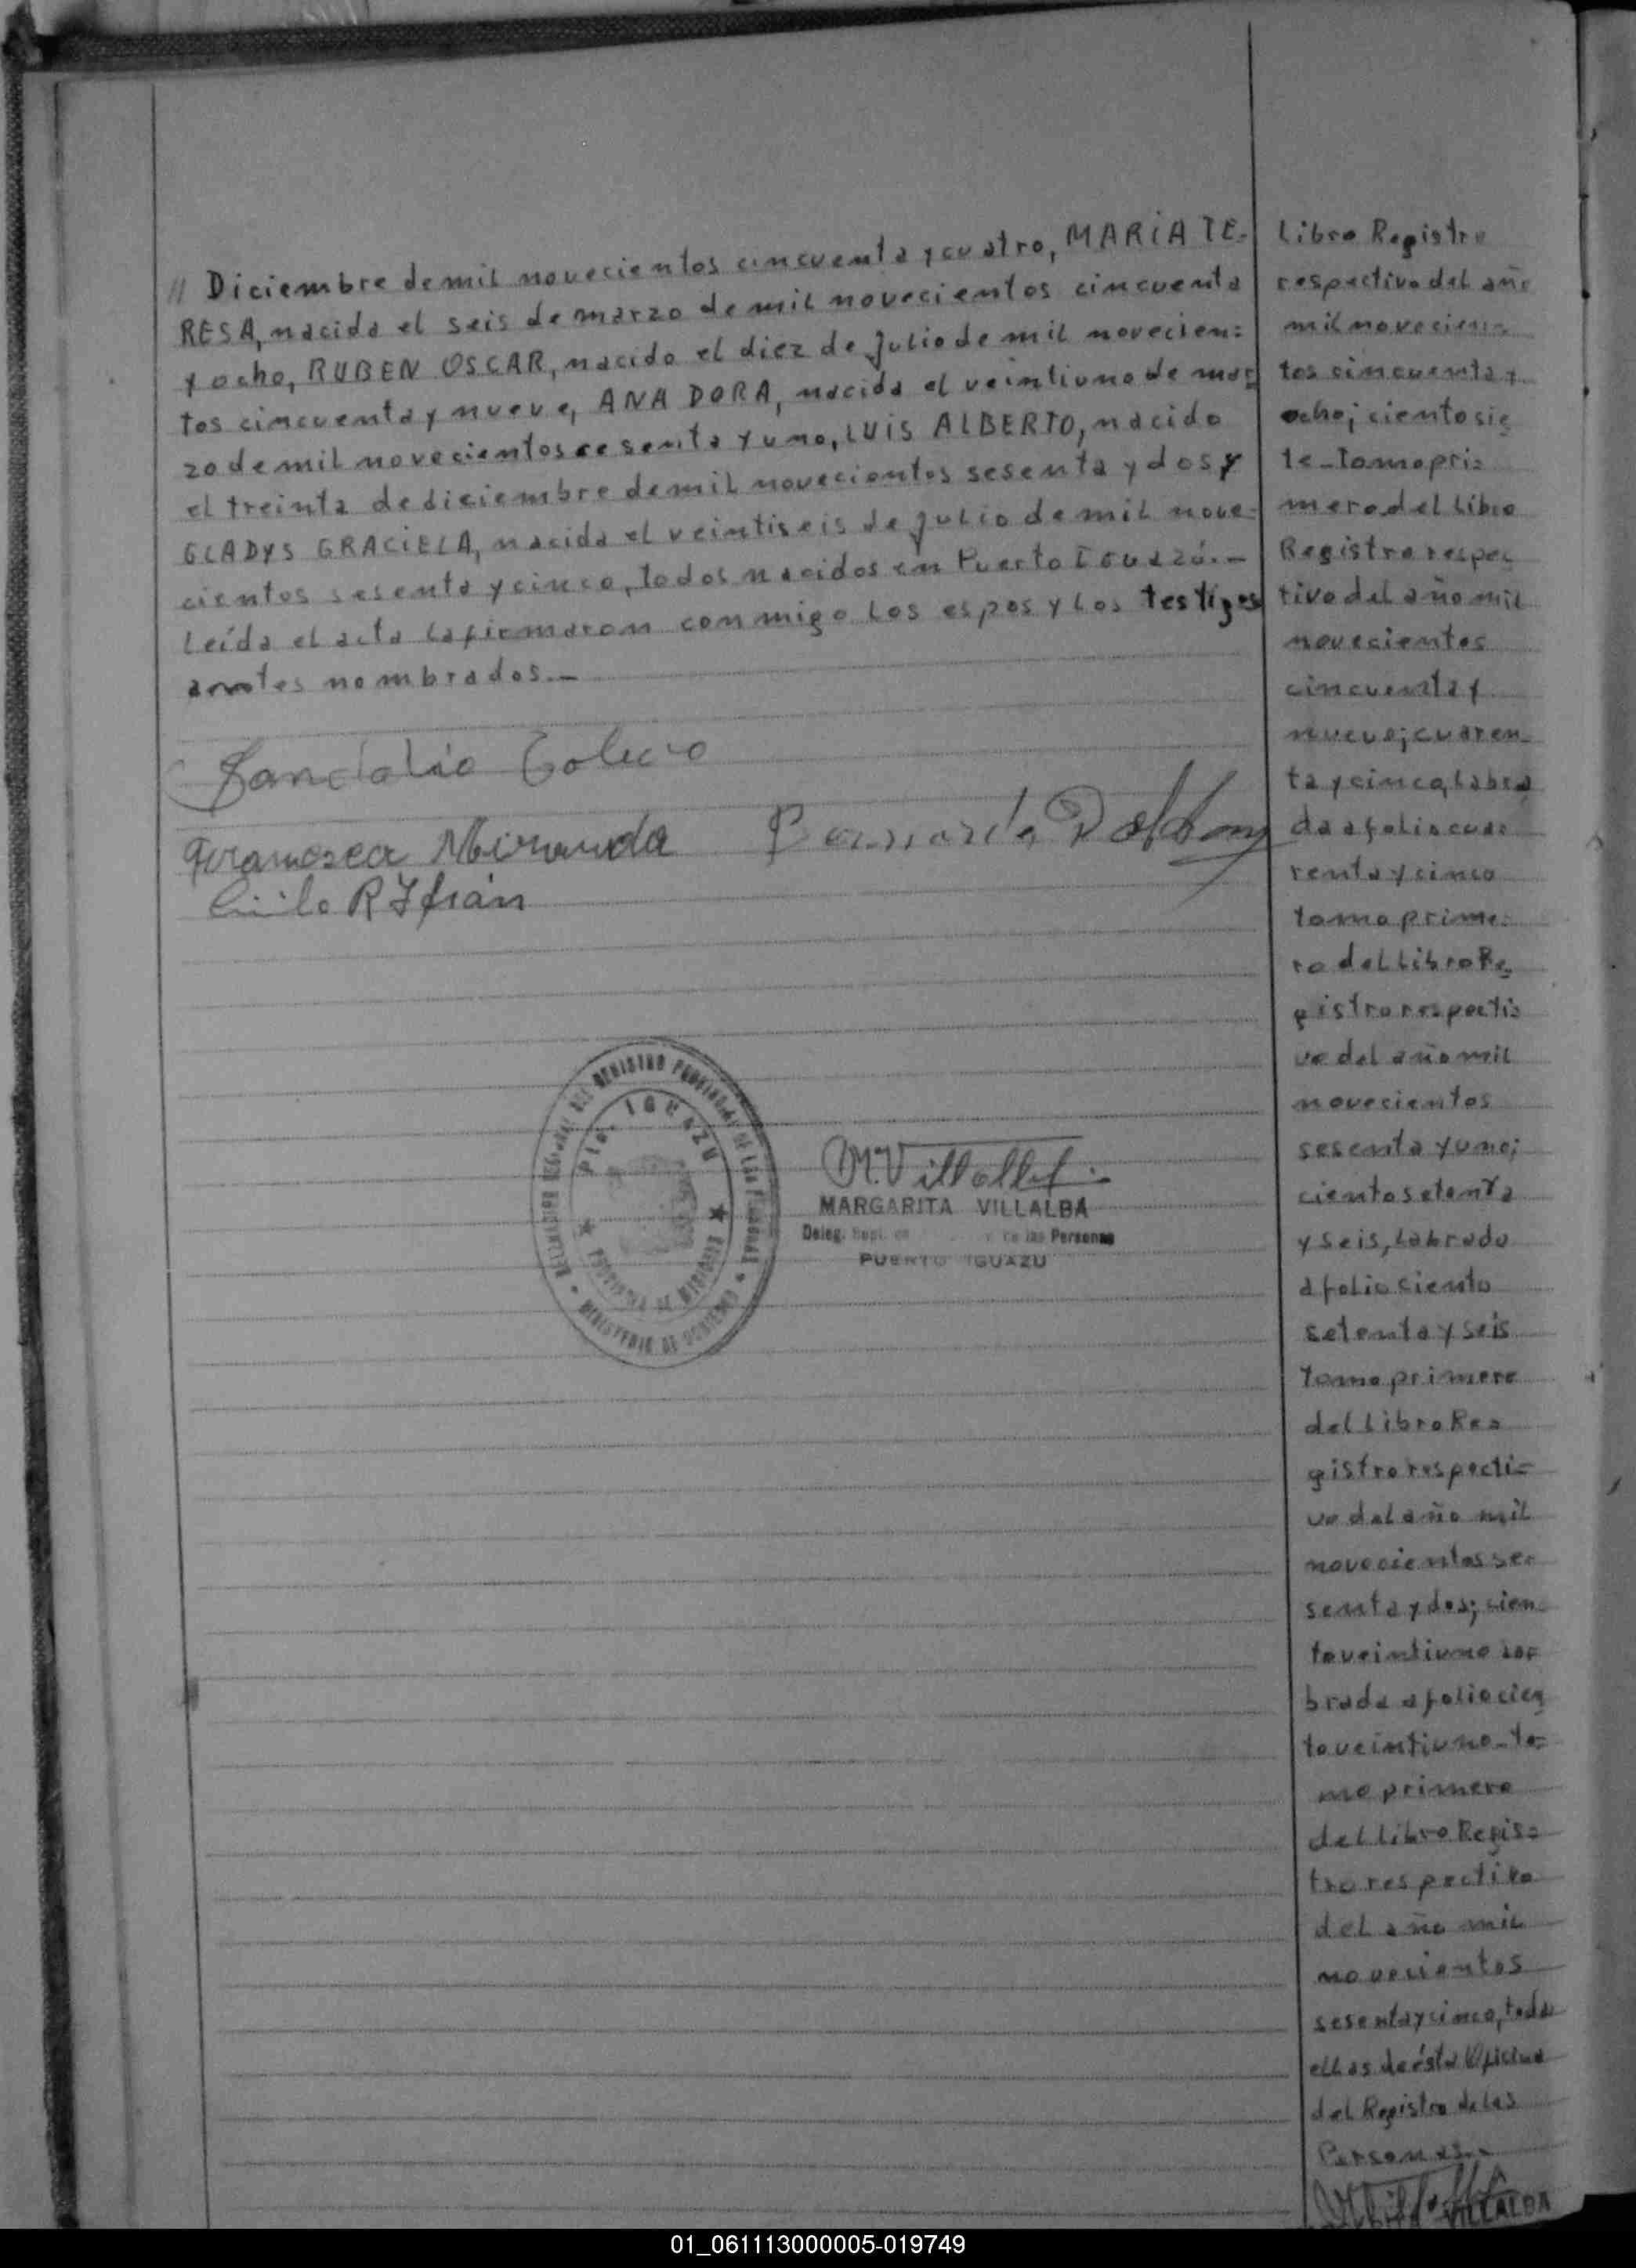 // Diciembre de mil novecientos cincuenta y cuatro, MARIA TE-
RESA, nacida el seis de marzo de mil novecientos cincuenta
y ocho, RUBEN OSCAR, nacido el diez de Julio de mil novecien=
tos cincuenta y nueve, ANA DORA, nacida el veintiuno de mar
zo de mil novecientos sesenta y uno, LUIS ALBERTO, nacido
el treinta de diciembre de mil novecientos sesenta y dos y
GLADYS GRACIELA, nacida el veintiseis de Julio de mil nove-
cientos sesenta y cinco, todos nacidos en Puerto Iguazú.-
Leída el acta la firmaron conmigo los espos y los testigos
antes nombrados.-
Francisca Miranda
R Ifrán
DEL REGISTRO PROVINCIAL DE LAS PERSONAS
PTO. IGUAZU
PROVINCIA DE MISIONES
MINISTERIO DE GOBIERNO
M. Villalba
MARGARITA VILLALBA
Deleg. de las Personas
PUERTO IGUAZU
Libro Registro
respectivo del año
mil novecien=
tos cincuenta y
ocho; ciento sie
te-Tomo pri=
mero del Libro
Registro respec
tivo del año mil
novecientos
cincuenta y
nueve; cuaren-
ta y cinco, labra
da a folio cua=
renta y cinco
tomo prime=
ro del Libro Re
gistro respecti=
vo del año mil
novecientos
sesenta y uno;
ciento setenta
y seis, labrado
a folio ciento
setenta y seis
Tomo primero
del Libro Re=
gistro respecti=
vo del año mil
novecientos se=
senta y dos; cien
to veintiuno la=
brada a folio cien
to veintiuno-to=
mo primero
del Libro Regis=
tro respectivo
del año mil
novecientos
sesenta y cinco, todas
ellas de ésta Oficina
del Registro de las
Personas.-
VILLALBA
01_061113000005-019749